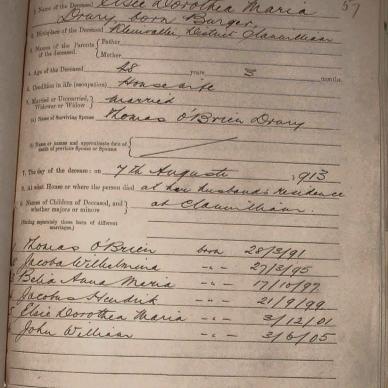 57
1. Name of the Deceased Elsie Dorothea Maria
Drury, born Burger
2. Birthplace of the Deceased District Clanwilliam
3. Names of the Parents of the deceased. Father
Mother
4. Age of the Deceased 48 years 3 months.
5. Condition in life (occupation) Housewife
6. Married or Unmarried, Widower or Widow Married
(a) Name of Surviving Spouse Thomas O'Brien Drury
(b) Name or names and approximate date of death of previous Spouse or Spouses
7. The day of the decease: on 7th Auguste 1913
8. At what House or where the person died at her husband's residence
at Clanwilliam.
9. Names of Children of Deceased, and whether majors or minors
(Stating separately those born of different marriages.)
Thomas O'Brien born 28/3/91
Jacoba Wilhelmina -"- 27/3/95
Anna Maria -"- 17/10/97
Jacobus Hendrik -"- 21/9/99
Elsie Dorothea Maria -"- 3/12/01
John William -"- 3/6/05